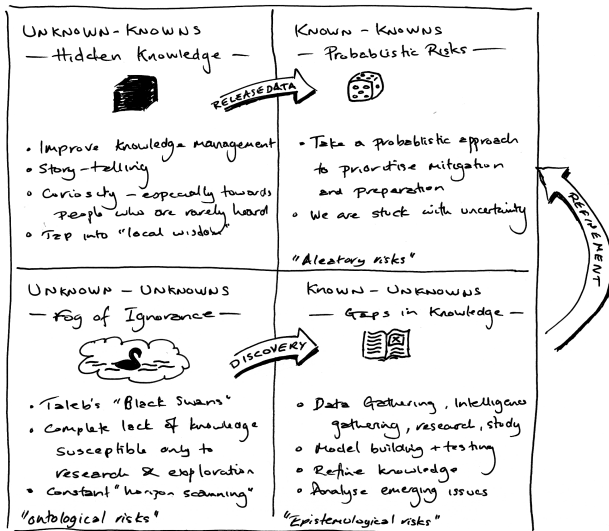 UNKNOWN-KNOWNS
— Hidden Knowledge —
RELEASE DATA
• Improve knowledge management
• Story-telling
• Curiosity – especially towards
people who are rarely heard
• Tap into "local wisdom"
KNOWN-KNOWNS
— Probablistic Risks —
• Take a probablistic approach
to prioritise mitigation
and preparation
• We are stuck with uncertainty
"Aleatory risks"
REFINEMENT
UNKNOWN-UNKNOWNS
— Fog of Ignorance —
DISCOVERY
• Taleb's "Black Swans"
• Complete lack of knowledge
susceptible only to
research & exploration
• Constant "horizon scanning"
"ontological risks"
KNOWN-UNKNOWNS
— Gaps in Knowledge —
• Data Gathering, Intelligence
gathering, research, study
• Model building + testing
• Refine knowledge
• Analyse emerging issues
"Epistemological risks"